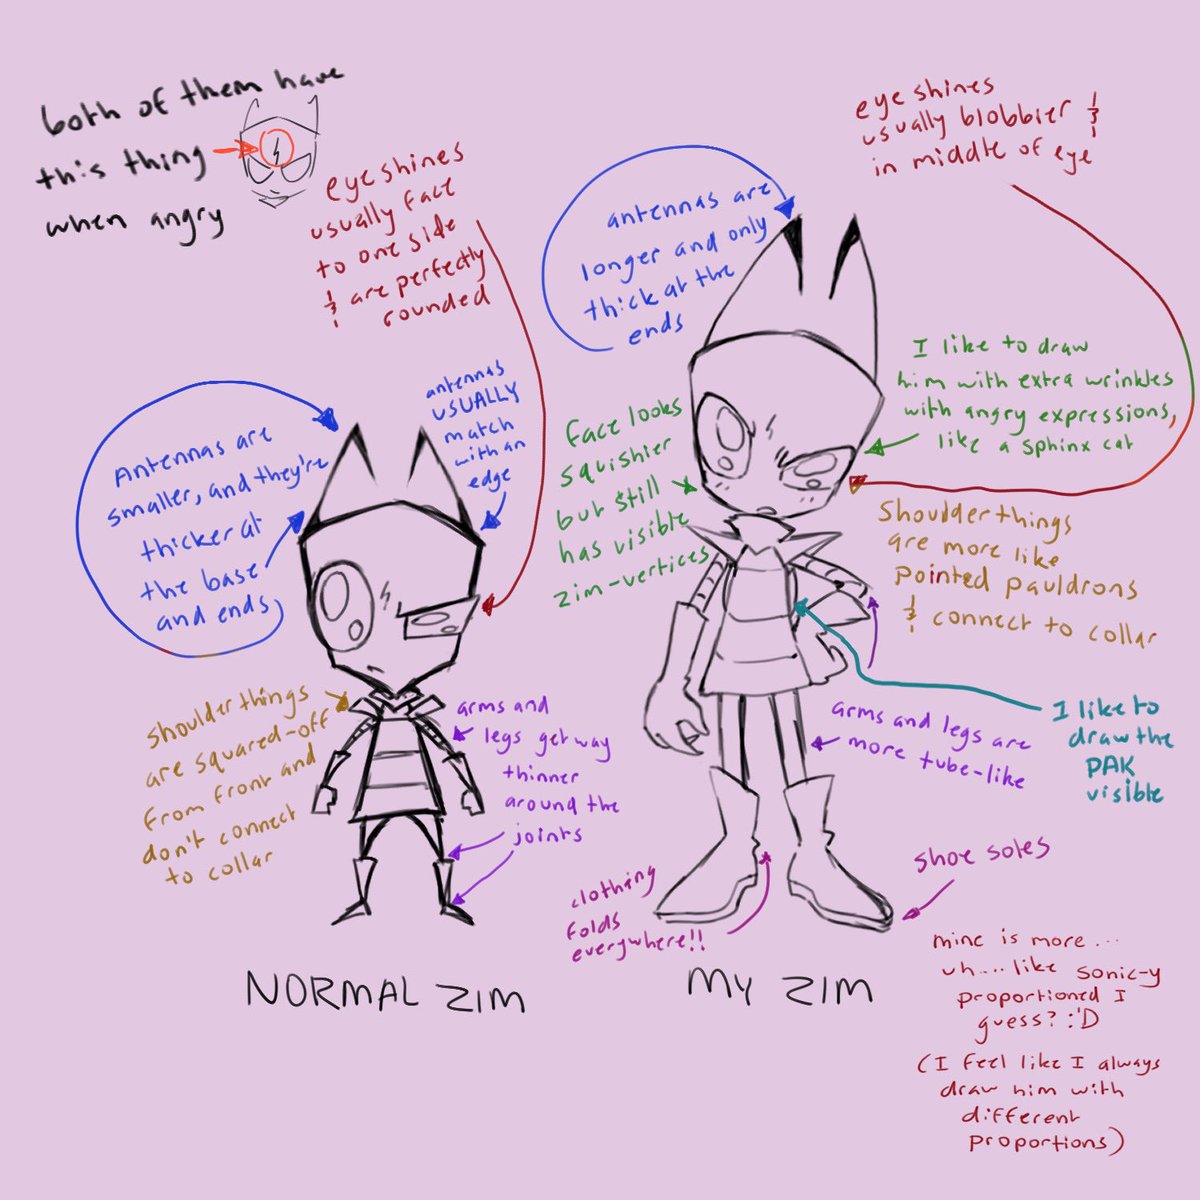 both of them have
this thing
when angry
eye shines
usually face
to one side
& are perfectly
rounded
antennas are
longer and only
thick at the
ends
eye shines
usually blobbier &
in middle of eye
I like to draw
him with extra wrinkles
with angry expressions,
like a sphinx cat
antennas
USUALLY
match
with an
edge
Antennas are
smaller, and they're
thicker at
the base
and ends
Face looks
squishier
but still
has visible
zim-vertices
Shoulder things
are more like
pointed pauldrons
& connect to collar
shoulder things
are squared-off
from front and
don't connect
to collar
arms and
legs get way
thinner
around the
joints
arms and legs are
more tube-like
I like to
draw the
PAK
visible
clothing
folds
everywhere!!
shoe soles
NORMAL ZIM
MY ZIM
mine is more...
uh.... like sonic-y
proportioned I
guess? :'D
(I feel like I always
draw him with
different
proportions)